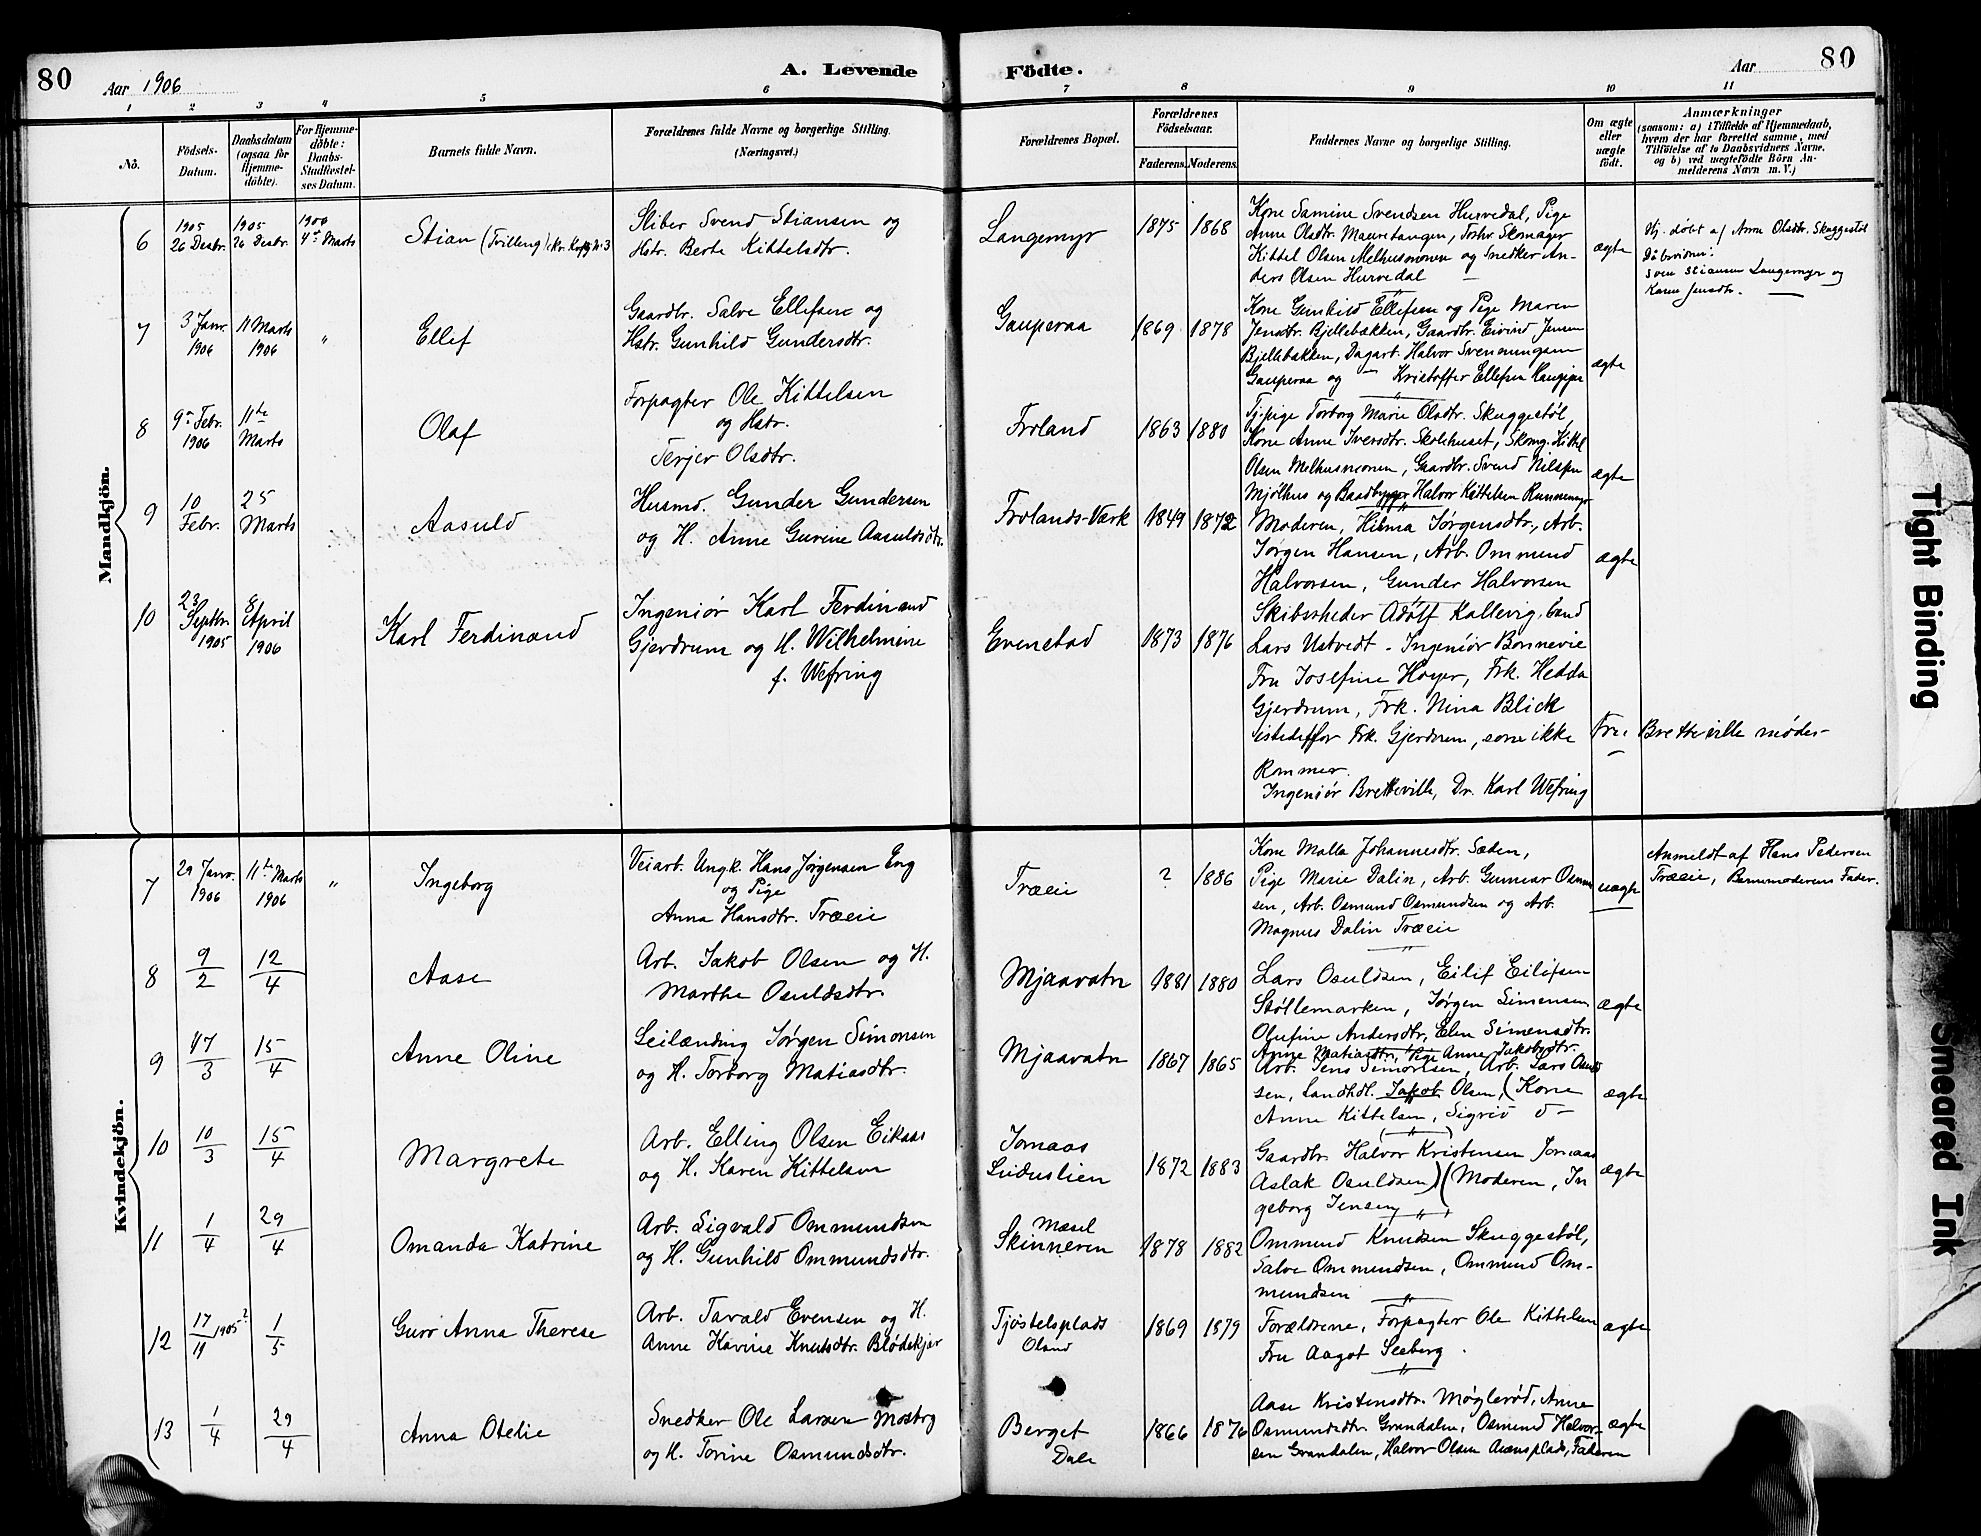 80
Aar 1906
A. Levende
Födte.
Aar
80
1 2 3 4 5 6 7 8 9 10 11
No.
Födsels-Datum.
Daabsdatum (ogsaa for Hjemme-döbte).
For Hjemme-döbte: Daabs-Stadfæstel-ses Datum.
Barnets fulde Navn.
Forældrenes fulde Navne og borgerlige Stilling. (Næringsvei.)
Forældrenes Bopæl.
Forældrenes Födselsaar.
Faderens. Moderens.
Faddernes Navne og borgerlige Stilling.
Om ægte eller uægte födt.
Anmærkninger
(saasom: a) i Tilfælde af Hjemmedaab,
hvem der har forrettet samme, med
Tilföielse af to Daabsvidners Navne,
og b) ved uegtefödte Börn An-
melderens Navn m. V.)
Mandkjön.
6
1905 26 Desbr.
1905 26 Desbr.
1906 4de Marts
Stian (Tvilling)
Sliber Svend Stiansen og
Hstr. Berte Kittelsdtr.
Langemyr
1875 1868
Kone Samine Svendsen Hurvedal, Pige
Anne Olsdtr. Mauretangen, Skomager
Kittel Olsen Melhusmonen og Snedker An-
ders Olsen Hurvedal
ægte
Hj. døbt af Anne Olsdtr. Skuggestøl
Sven Stiansen Langemyr og
Karen Jensdtr.
7
3 Janr. 1906
11 Marts 1906
"
Ellef
Gaardbr. Salve Ellefsen og
Hstr. Gunhild Gundersdtr.
Gauperaa
1869 1878
Kone Gunhild Ellefsen og Pige Maren
Jensdtr. Bjellebækken, Gaardbr. Eivind Jensen
Bjellebækken, Dagarb. Halvor Svenningsen
Gauperaa og — Kristoffer Ellefsen
ægte
8
9de Febr. 1906
11te Marts
Olaf
Forpagter Ole Kittelsen
og Hstr.
Terjer Olsdtr.
Froland
1863 1880
Tj.pige Torborg Marie Olsdtr. Skuggestøl,
Kone Anne Iversdtr. Skolehuset, Skomg. Kittel
Olsen Melhusmonen, Gaardbr. Svend Nilsen
Mjølhus og Baadbygger Halvor Kittelsen
ægte
9
10 Febr.
25 Marts
Aasuld
Husmd. Gunder Gundersen
og H. Anne Gurine Aasuldsdtr.
Frolands-Værk
1849 1872
Moderen, Hilma Jørgensdtr., Arb.
Jørgen Hansen, Arb. Ommund
Halvorsen, Gunder Halvorsen
ægte
10
23 Septbr. 1905
8 April 1906
Karl Ferdinand
Ingeniør Karl Ferdinand
Gjerdrum og H. Wilhelmine
f. Wefring
Evenstad
1873 1876
Skibsrheder Adolf Kallevig, cand
Lars Ustvedt - Ingeniør Bonnevie
Fru Josefine Høyer, Frk. Hedda
Gjerdrum, Frk. Nina Blick
istedetfor Frk. Gjerdrum, som ikke
kommer.
Ingeniør Bretteville, Dr. Karl Wefring
Bretteville møder
Kvindekjön.
7
29 Janr. 1906
11te Marts 1906
"
Ingeborg
Veiarb. Ungk. Hans Jørgensen Eng
og Pige
Anna Hansdtr. Træeie
Træeie
? 1886
Kone Malla Johannesdtr. Sæden,
Pige Marie Dalin, Arb. Gunnar Osmun
sen, Arb. Osmund Osmundsen og Arb.
Magnus Dalin Træeie
uægte
Anmeldt af Hans Pedersen
Træeie, Barnemoderens Fader.
8
9/2
12/4
Aase
Arb. Jakob Olsen og H.
Marthe Osuldsdtr.
Mjaavatn
1881 1880
Lars Osuldsen, Eilif Eilifsen
Støllemarken, Jørgen Simensen
Olufine Andersdtr., Elen Simensdtr.
ægte
9
17/3
15/4
Anne Oline
Leilænding Jørgen Simonsen
og H. Torborg Matiasdtr.
Mjaavatn
1867 1865
Anne Matiasdtr., Pige Anne Jakobsdtr.
Arb. Jens Simonsen, Arb. Lars Osuld
sen, Landhdl. Jakob Olsen, (Kone
Anne Kittelsen, Sigrid d—
ægte
10
10/3
15/4
Margrete
Arb. Elling Olsen Eikaas
og H. Karen Kittelsen
Jomaas
1872 1883
Gaardbr. Halvor Kristensen Jomaas
Aslak Osuldsen) (Moderen, In
geborg Jensen
ægte
11
1/4
29/4
Omanda Katrine
Arb. Sigvald Ommundsen
og H. Gunhild Ommundsdtr.
Mæsel
Skinneren
1878 1882
Ommund Knudsen Skuggestøl,
Salve Ommundsen, Ommund Om-
mundsen
12
17/11 1905
1/5
Guro Anna Therese
Arb. Tarald Evensen og H.
Anne Karine Knutsdtr. Blødekjær
Tjøstelsplads
Oland
1869 1879
Forældrene, Forpagter Ole Kittelsen
Fru Aagot Seeberg.
ægte
13
1/4
29/4
Anna Otelie
Snedker Ole Larsen Mosberg
og H. Torine Osmundsdtr.
Berget
Dale
1866 1876
Aase Kristensdtr. Møglerød, Anne
Osmundsdtr. Grandalen, Osmund Halvor-
sen Grandalen, Halvor Olsen Aasensplads, Faderen
ægte
Tight Binding
Smeared Ink